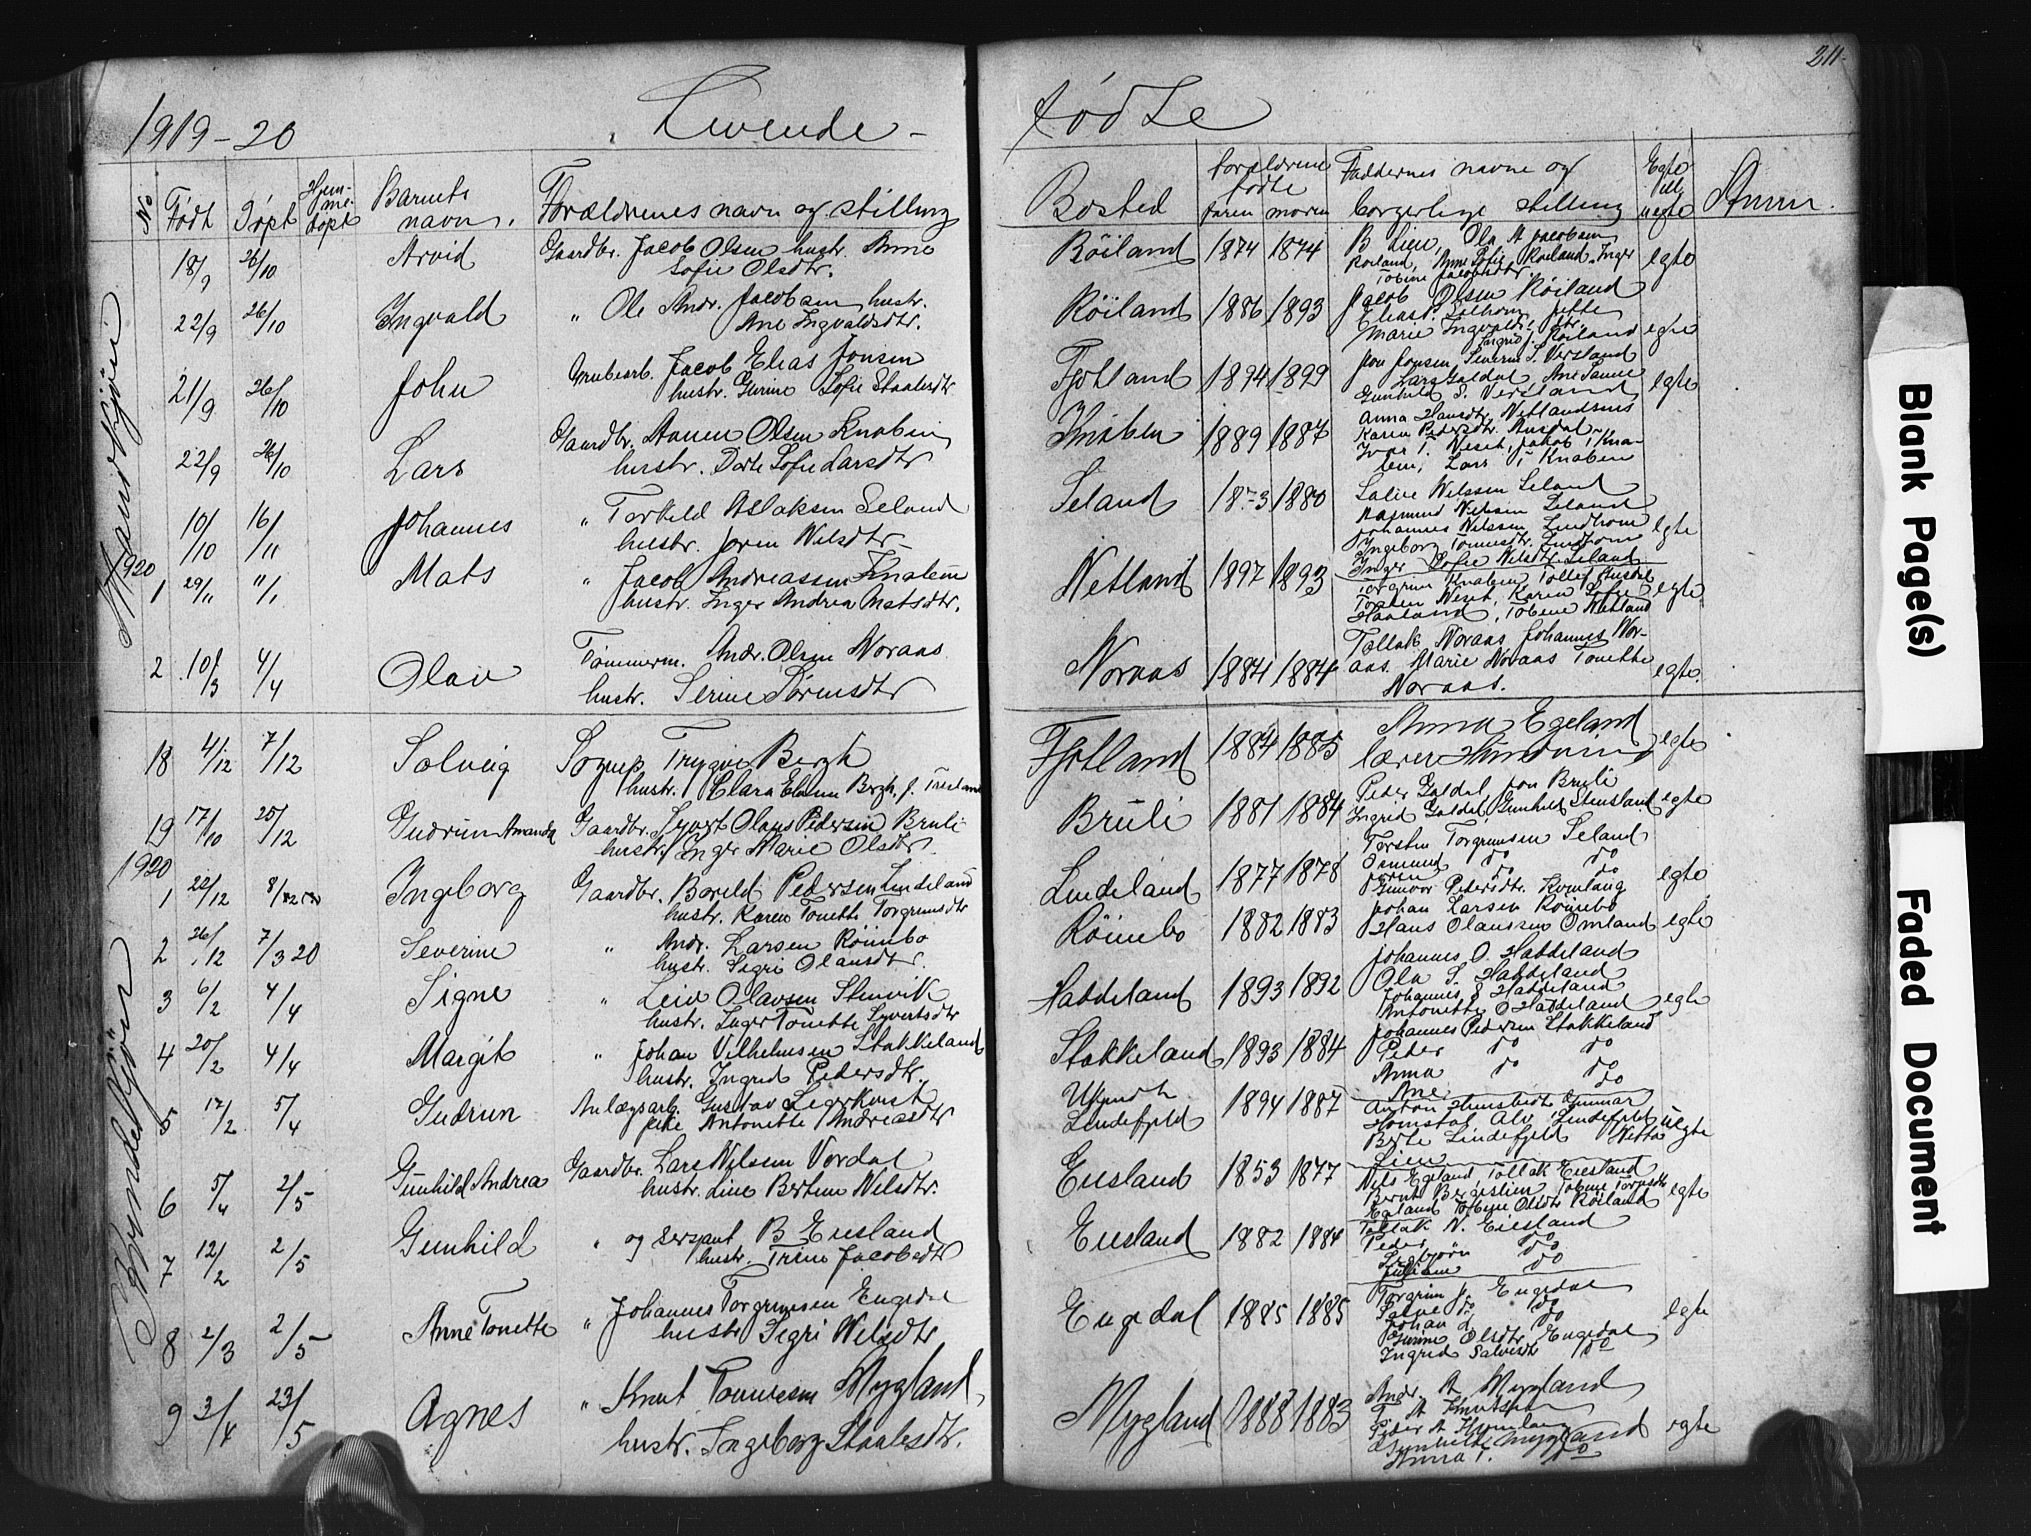 211.
1919-20 Levende - fødte
No Født Døpt Hjem-me-døpt Barnets navn. Forældrenes navn og stilling Bosted Forældrene fødte faren moren Faddernes navne og borgerlige stilling Egte ell. uegte Anm.
Mandkjøn
18/9 26/10 Arvid Gaardbr. Jacob Olsen hustr. Anne Sofie Olsdtr. Röiland 1874 1874 egte
22/9 26/10 Ingvald " Ole Andr. Jacobsen hustr. Ane Ingvaldsdtr. Röiland 1886 1893 Jacob Olsen Röiland egte
21/9 26/10 John Grubearb. Jacob Elias Jonsen hustr. Gurine Sofie Staalesdtr Fjotland 1894 1899 Jon Jonsen, Severin S. Versland Gunhild S. Versland egte
22/9 26/10 Lars Gaardbr. Olsen Knaben hustr. Dorte Sofie Larsdtr Knaben 1889 1887 Anna Hansdtr. Netlandsnes Karen Pedersdtr. Lars i Knaben
10/10 16/11 Johannes " Torkild Aslaksen Seland hustr. Joren Nilsdtr Seland 1873 1880 Salve Nilssen Seland Rasmund Nilssen Seland Johannes Nilssen Lindhom Ingeborg Tomesdtr. Lindhom Inger Sofie Nilsdtr. Seland egte
1920
1 29/11 11/1 Mats " Jacob Andreassen Knaben hustr. Inger Andrea Matsdtr. Netland 1897 1893 Torgrim Knaben Torsten Neset, Karen Sofie Haaland, Tobine Netland egte
2 10/3 4/4 Olav Tømmerm. Andr. Olsen Noraas hustr. Serine Sörensdtr Noraas 1884 1884 Tallak Noraas Johannes Nor-aas. Marie Noraas Tonette Noraas. egte.
Kvindekjøn
18 4/12 7/12 Solveig Sognep Trygve Bergh hustr. Clara Bergh f. Fjotland 1884 1885 Anna Egeland lærer egte
19 17/10 25/12 Gudrun Amanda Gaardbr. Syvert Olaus Pedersen Bruli hustr. Inger Marie Olsdtr. Bruli 1881 1884 Peder Galdal, Jon Bruli Ingrid Galdal, Gunhild Stensland egte
1920
1 22/12 8/2 Ingeborg Gaardbr. Boreld Pedersen Lindeland hustr. Karen Tonette Torgrimsdtr Lindeland 1877 1878 Torsten Torgrimsen Seland Osmund do do Joren Gunvor Pedersdtr. Kvinlaug egte
2 26/12 7/3 20 Severine " Andr. Larsen Röinebo hustr. Sigri Olausdtr. Röinebo 1882 1883 Johan Larsen Röinebo Hans Olaussen Omland egte
3 6/2 4/4 Signe " Leiv Olavsen Stenvik hustr. Inger Tonette Syvertsdtr Haddeland 1893 1892 Johannes O. Haddeland Ola S. Haddeland Johannes S Haddeland Antonette O Haddeland egte
4 20/2 4/4 Margit " Johan Vilhelmsen Stakkeland hustr. Ingrid Pedersdtr. Stakkeland 1893 1884 Johannes Pedersen Stakkeland Peter do do Anna do do Ane do
5 17/2 5/4 Gudrun Anlægsarb. Gustav Segerkvist pike Antonette Andreasdtr Lindefjeld 1894 1887 Anton Gunnar Homstøl Alv. Lindefjeld Berte Lindefjeld Netta Lien uegte
6 5/4 2/5 Gunhild Andrea Gaardbr. Lars Nilssen Vordal hustr. Line Bertine Nilsdtr. Eiesland 1853 1877 Nils Egeland, Tallak Eiesland Egeland Tobine Olsdtr Röiland egte
7 12/2 2/5 Gunhild " og sersjant B Eiesland hustr. Trine Jacobsdtr Eiesland 1882 1884 Tallak N. Eiesland Peder do do
8 2/3 2/5 Anne Tonette " Johannes Torgrimsen Engedal hustr Sigri Nilsdtr Engedal 1885 1885 Torgrim J. Engedal Salve J. do Johan J. do Gurine Olsdtr Engedal Ingrid Salvesdtr do egte
9 3/4 23/5 Agnes " Knut Tomessen Mygland, hustr. Ingeborg Staalesdtr. Mygland 1888 1883 Andr. A Mygland T. A Knutsen Peder A Kvinlaug Gunhild T. Mygland Anna T. do egte
Blank Page(s)
Faded Document